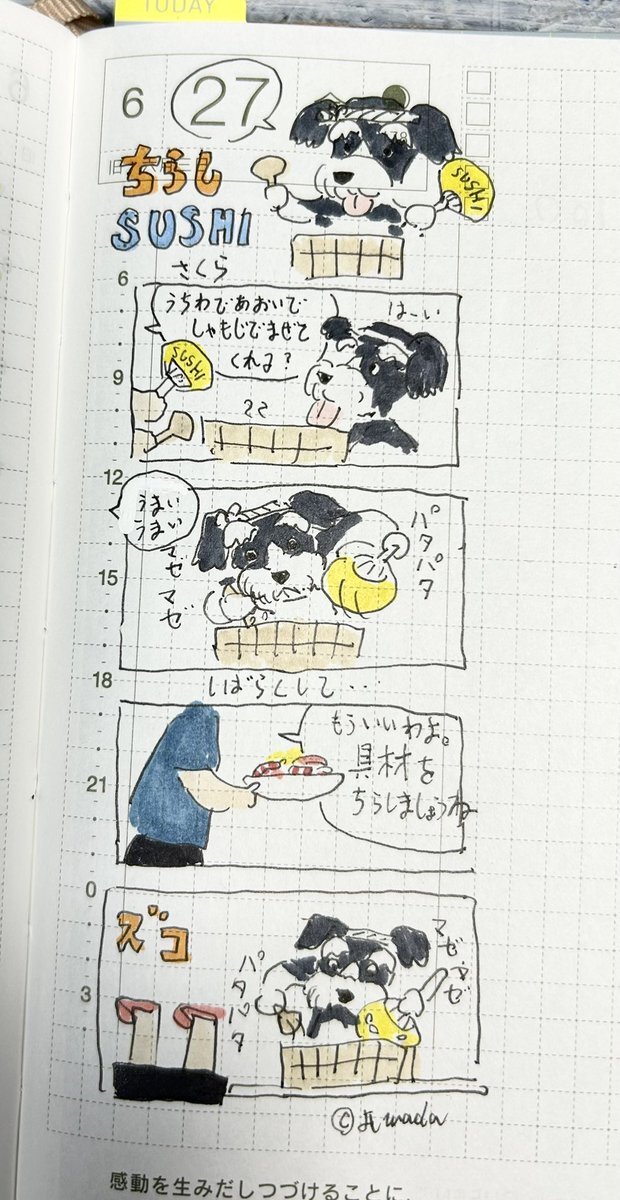 TODAY
6 27
ちらし
SUSHI
さくら
SUSHI
6
9
12
15
18
21
0
3
うちわであおいで
しゃもじでまぜて
くれる?
はーい
SUSHI
うまい
うまい
マゼマゼ
パタパタ
しばらくして…
もういいわよ。
具材を
ちらしましょうね
ズコ
パタパタ
マゼマゼ
感動を生みだしつづけることに、